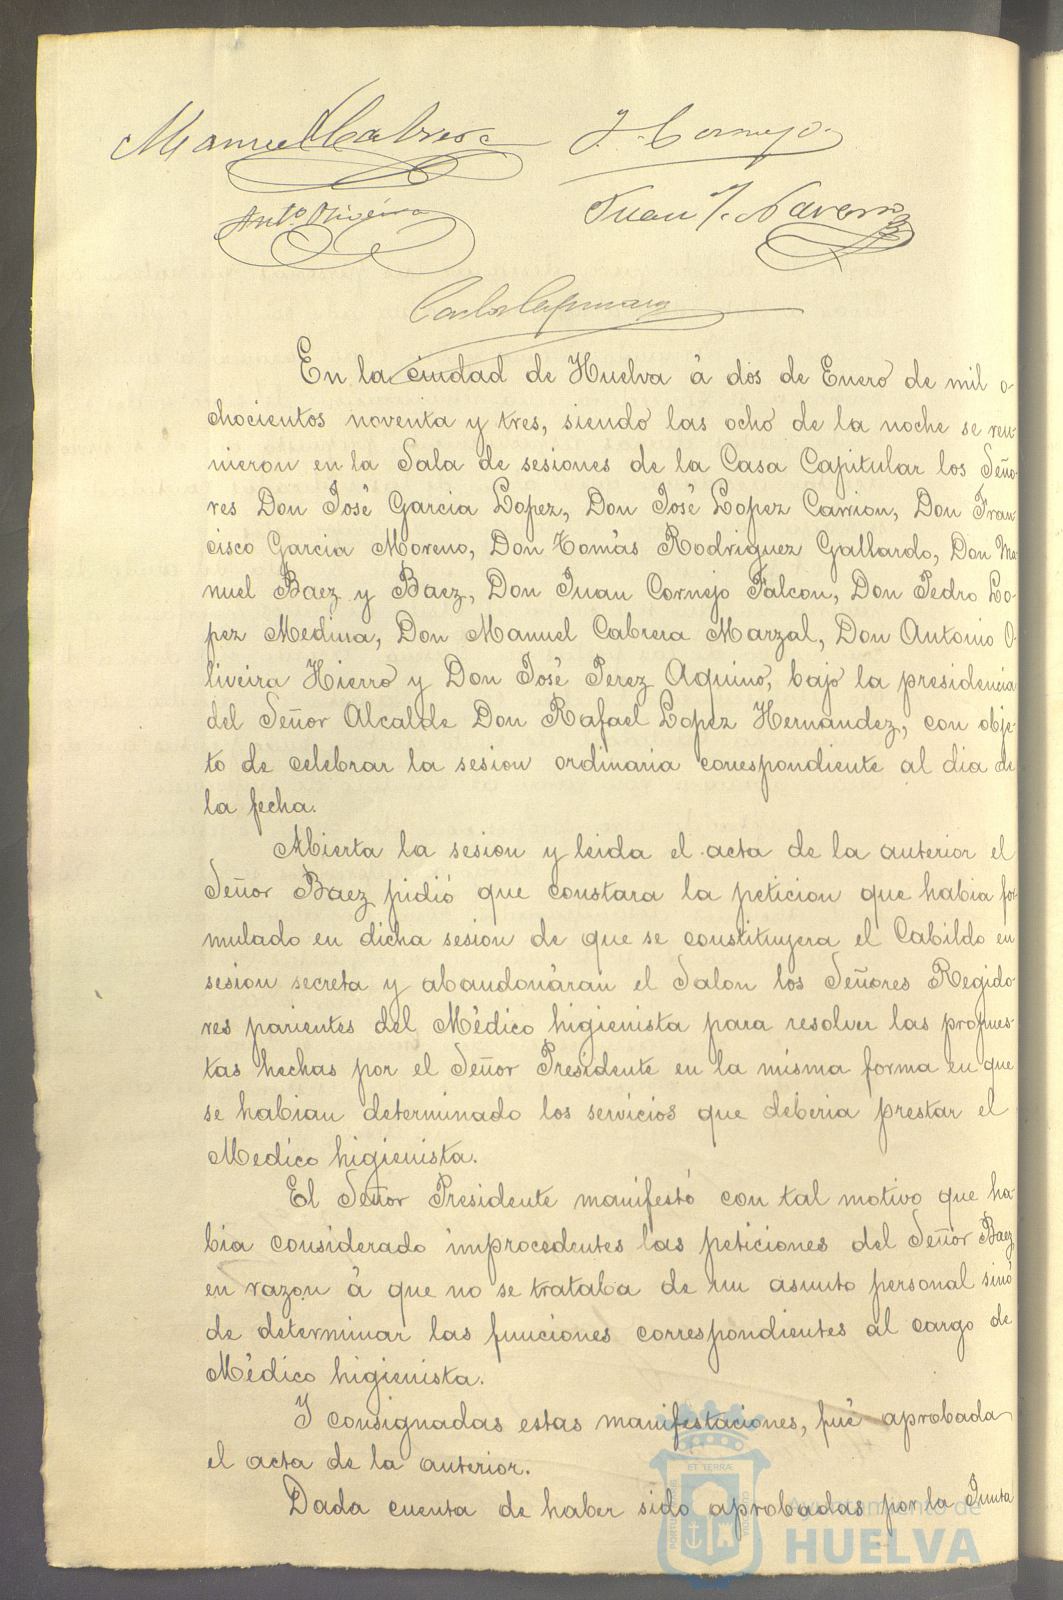 Manuel Cabrera J. Cornejo
Ant.º Oliveira Juan J. Navarro
Carlos
En la ciudad de Huelva á dos de Enero de mil o-
chocientos noventa y tres, siendo las ocho de la noche se reu-
nieron en la Sala de sesiones de la Casa Capitular los Seño-
res Don José Garcia Lopez, Don José Lopez Carrion, Don Fran
cisco Garcia Moreno, Don Tomás Rodriguez Gallardo, Don Ma-
nuel Baez y Baez, Don Juan Cornejo Falcon, Don Pedro Lo-
pez Medina, Don Manuel Cabrera Marzal, Don Antonio O-
liveira Hierro y Don José Perez Aquino, bajo la presidencia
del Señor Alcalde Don Rafael Lopez Hernandez, con obje-
to de celebrar la sesion ordinaria correspondiente al dia de
la fecha.
Abierta la sesion y leida el acta de la anterior el
Señor Baez pidió que constara la peticion que habia for-
mulado en dicha sesion de que se constituyera el Cabildo en
sesion secreta y abandonáran el Salon los Señores Regido
res parientes del Médico higienista para resolver las propues-
tas hechas por el Señor Presidente en la misma forma en que
se habian determinado los servicios que deberia prestar el
Medico higienista.
El Señor Presidente manifestó con tal motivo que ha-
bia considerado improcedentes las peticiones del Señor Baez
en razon á que no se trataba de un asunto personal sinó
de determinar las funciones correspondientes al cargo de
Médico higienista.
Y consignadas estas manifestaciones, fué aprobada
el acta de la anterior.
Dada cuenta de haber sido aprobadas por la Junta
Ayuntamiento de
HUELVA